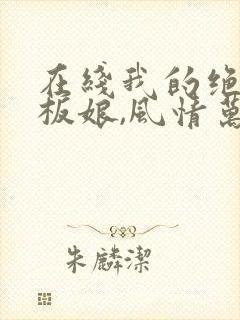 在綫我的绝
板娘,風情萬
朱麟潔